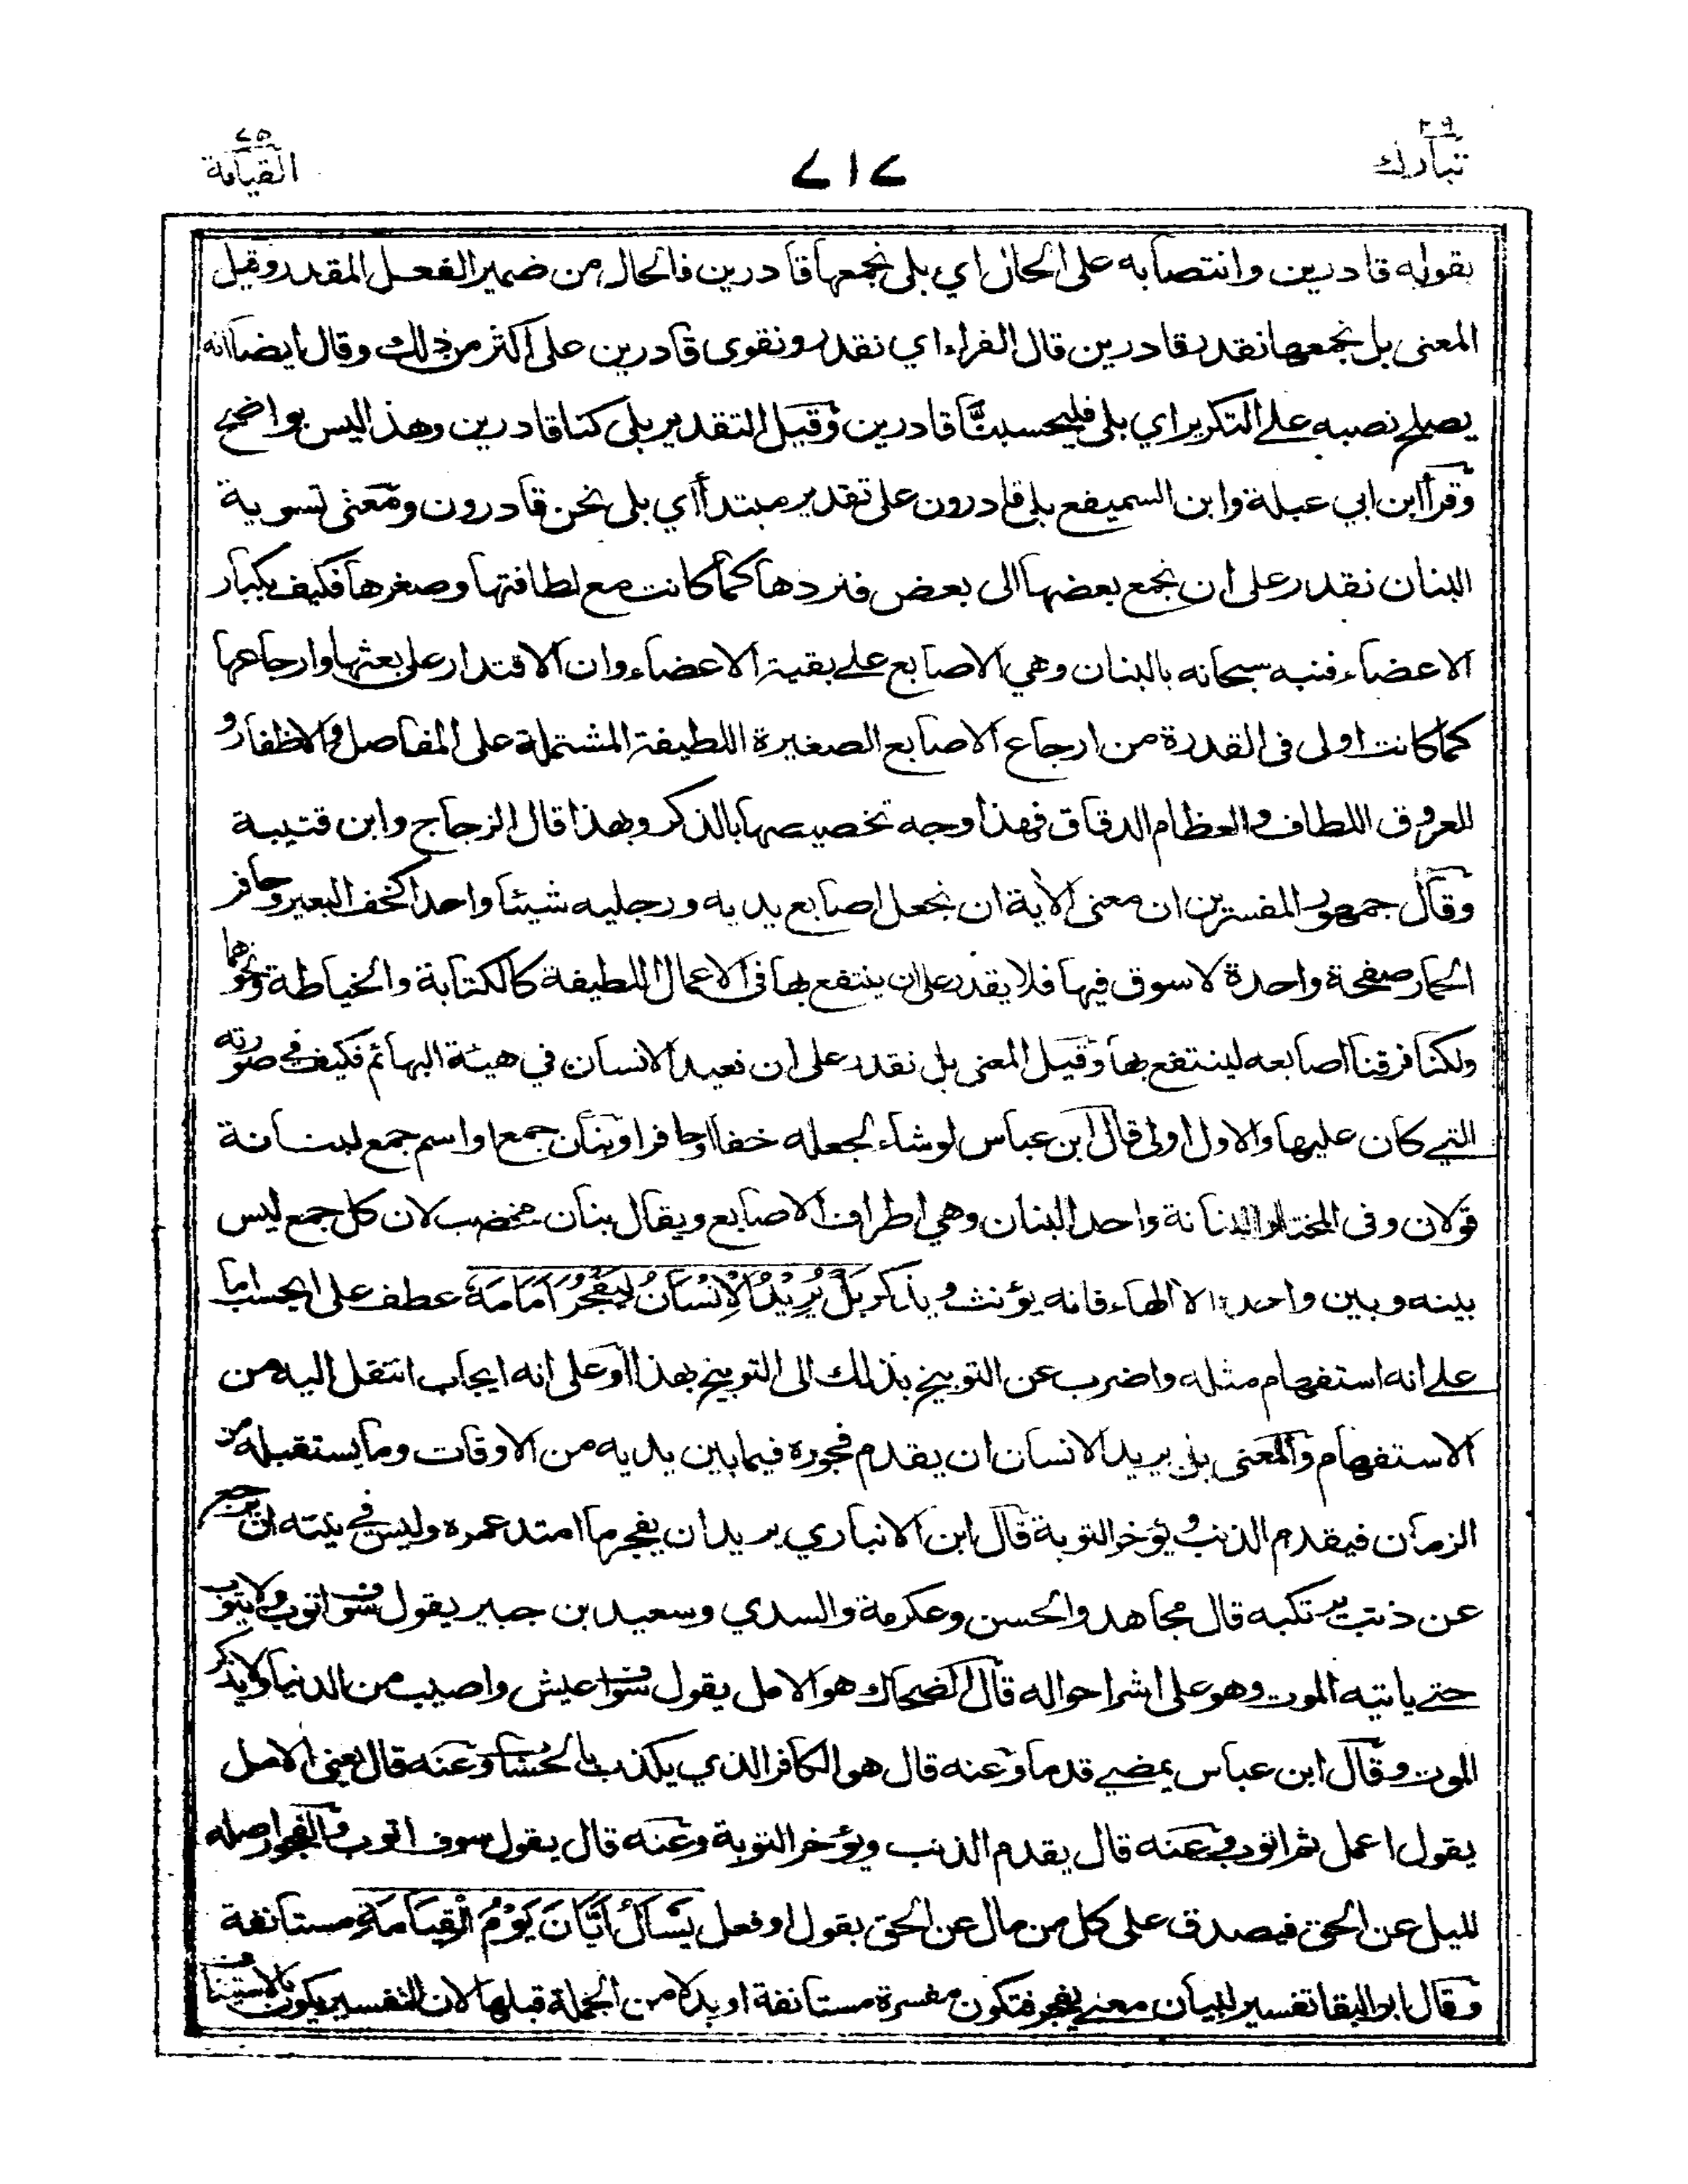 تبارك ٢٩
٧١٧
القيامة ٧٥
بقوله قادرين وانتصابه على الحال اي بلى نجمعها قادرين فالحال من ضمير الفعل المقدر وقيل
المعنى بل نجمعها نقدر قادرين قال الفراء اي نقدر ونقوى قادرين على اكثر من ذلك وقال ايضا انه
يصلح نصبه على التكرير اي بلى فليحسبنّا قادرين وقيل التقدير بلى كنا قادرين وهذا ليس بواضح
وقرأ ابن ابي عبلة وابن السميفع بلى قادرون على تقدير مبتدأ أي بلى نحن قادرون ومعنى تسوية
البنان نقدر على ان نجمع بعضها الى بعض فنردها كما كانت مع لطافتها وصغرها فكيف بكبار
الاعضاء فنبه سبحانه بالبنان وهي الاصابع على بقية الاعضاء وان الاقتدار على بعثها وارجاعها
كما كانت اولى فى القدرة من ارجاع الاصابع الصغيرة اللطيفة المشتملة على المفاصل والاظفار و
العروق اللطاف والعظام الدقاق فهذا وجه تخصيصها بالذكر وبهذا قال الزجاج وابن قتيبة
وقال جمهور المفسرين ان معنى الآية ان نجعل اصابع يديه ورجليه شيئا واحدا كخف البعير وحافر
الحمار صفيحة واحدة لا سوق فيها فلا يقدر على ان ينتفع بها فى الاعمال اللطيفة كالكتابة والخياطة ونحوهما
ولكنا فرقنا اصابعه لينتفع بها وقيل المعنى بل نقدر على ان نعيد الانسان في هيئة البهائم فكيف في صورته
التي كان عليها والاول اولى قال ابن عباس لو شاء لجعله خفا او حافرا وبنان جمع او اسم جمع لبنانة
قولان وفى المختار البنانة واحد البنان وهي اطراف الاصابع ويقال بنان مخضب لان كل جمع ليس
بينه وبين واحده الا الهاء فانه يؤنث ويذكر بَلْ يُرِيْدُ الْاِنْسَانُ لِيَفْجُرَ اَمَامَهٗ عطف على ايحسب اما
على انه استفهام مثله واضرب عن التوبيخ بذلك الى التوبيخ بهذا او على انه ايجاب انتقل اليه من
الاستفهام والمعنى بل يريد الانسان ان يقدم فجوره فيما بين يديه من الاوقات وما يستقبله من
الزمان فيقدم الذنب ويؤخر التوبة قال ابن الانباري يريد ان يفجر ما امتد عمره وليس في نيته ان يرجع
عن ذنب يرتكبه قال مجاهد والحسن وعكرمة والسدي وسعيد بن جبير يقول سوف اتوب ولا يتوب
حتى ياتيه الموت وهو على اشر احواله قال الضحاك هو الامل يقول سوف اعيش واصيب من الدنيا ولا يذكر
الموت وقال ابن عباس يمضي قدما وعنه قال هو الكافر الذي يكذب بالحساب وعنه قال يعني الامل
يقول اعمل ثم اتوب وعنه قال يقدم الذنب ويؤخر التوبة وعنه قال يقول سوف اتوب والفجور اصله
الميل عن الحق فيصدق على كل من مال عن الحق بقول او فعل يَسْاَلُ اَيَّانَ يَوْمُ الْقِيَامَةِ مستانفة
وقال ابو البقا تفسير لبيان معنى يفجر فتكون مفسرة مستانفة او بدلا من الجملة قبلها لان التفسير يكون بالاستيناف